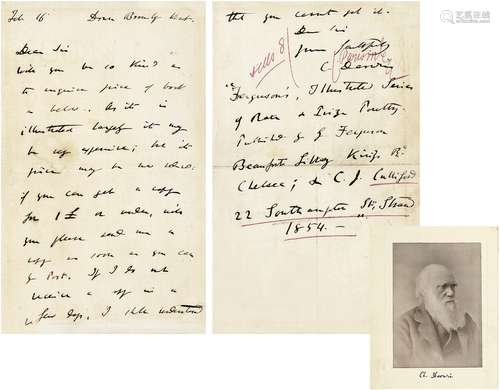 Feb 16 Down Bromley Kent.
Dear Sir
Will you be so kind as
to enquire price of book
as below. As it is
illustrated largely it may
be very expensive; but its
price may be
if you can get a copy
for 1 £ or under, will
you please send me a
copy as soon as you can
by Post. If I do not
receive a copy in a
few days, I shall understand
that you cannot get it.
Dear Sir
yours faithfully
C. Darwin
"Ferguson's, Illustrated Series
of Rare & Prize Poultry.
Published by G Ferguson
Beaufort Library King's Rd
Chelsea; & C. J. Culliford
22 Southampton St, Strand
1854. —
Ch. Darwin